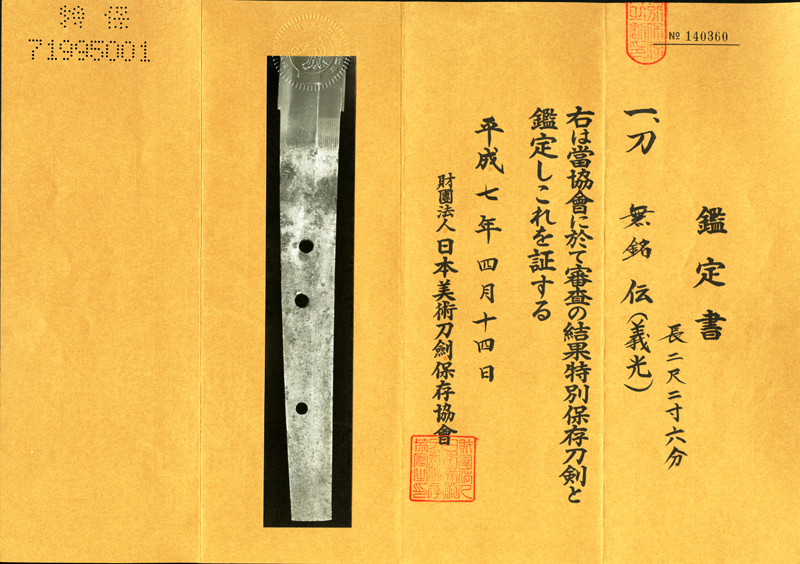 特保
71995001
№ 140360
鑑定書
一、刀 無銘 伝(義光)
長二尺二寸六分
右は當協會に於て審査の結果特別保存刀剣と
鑑定しこれを証する
平成七年四月十四日
財團法人 日本美術刀劍保存協會